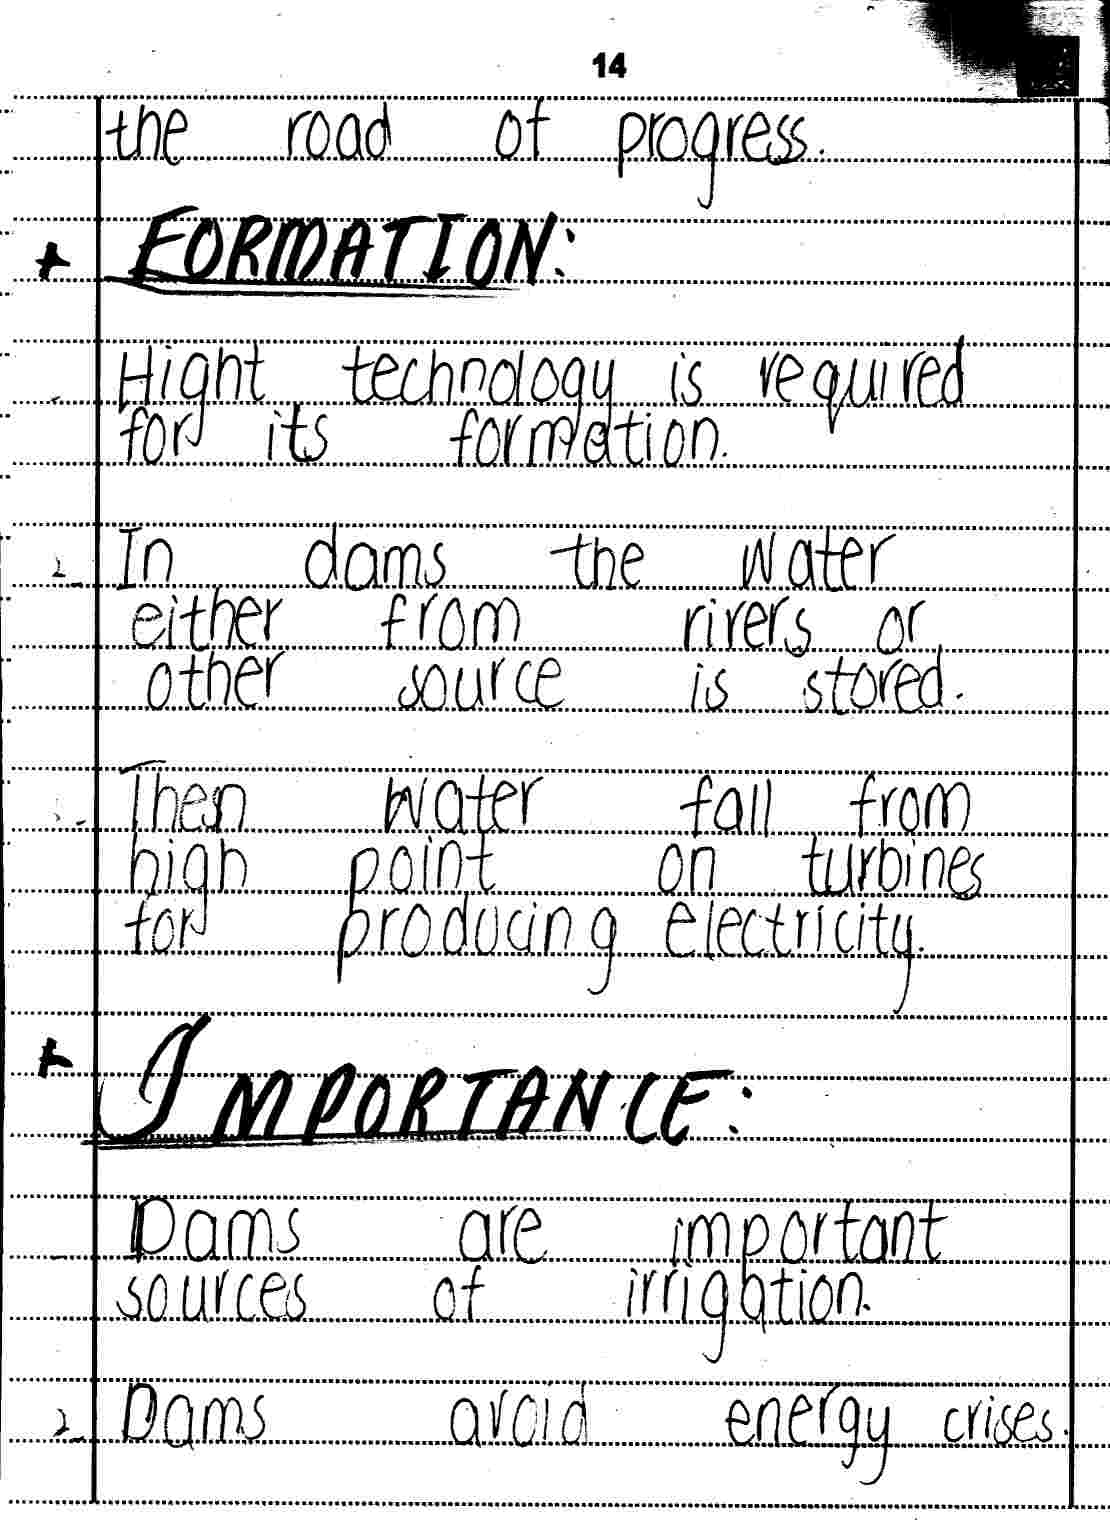 14
the road of progress.
FORMATION:
Hight technology is required
for its formation.
2_ In dams the water
either from rivers or
other source is stored.
Then water fall from
high point on turbines
for producing electricity.
IMPORTANCE:
Dams are important
sources of irrigation.
2_ Dams avoid energy crises.